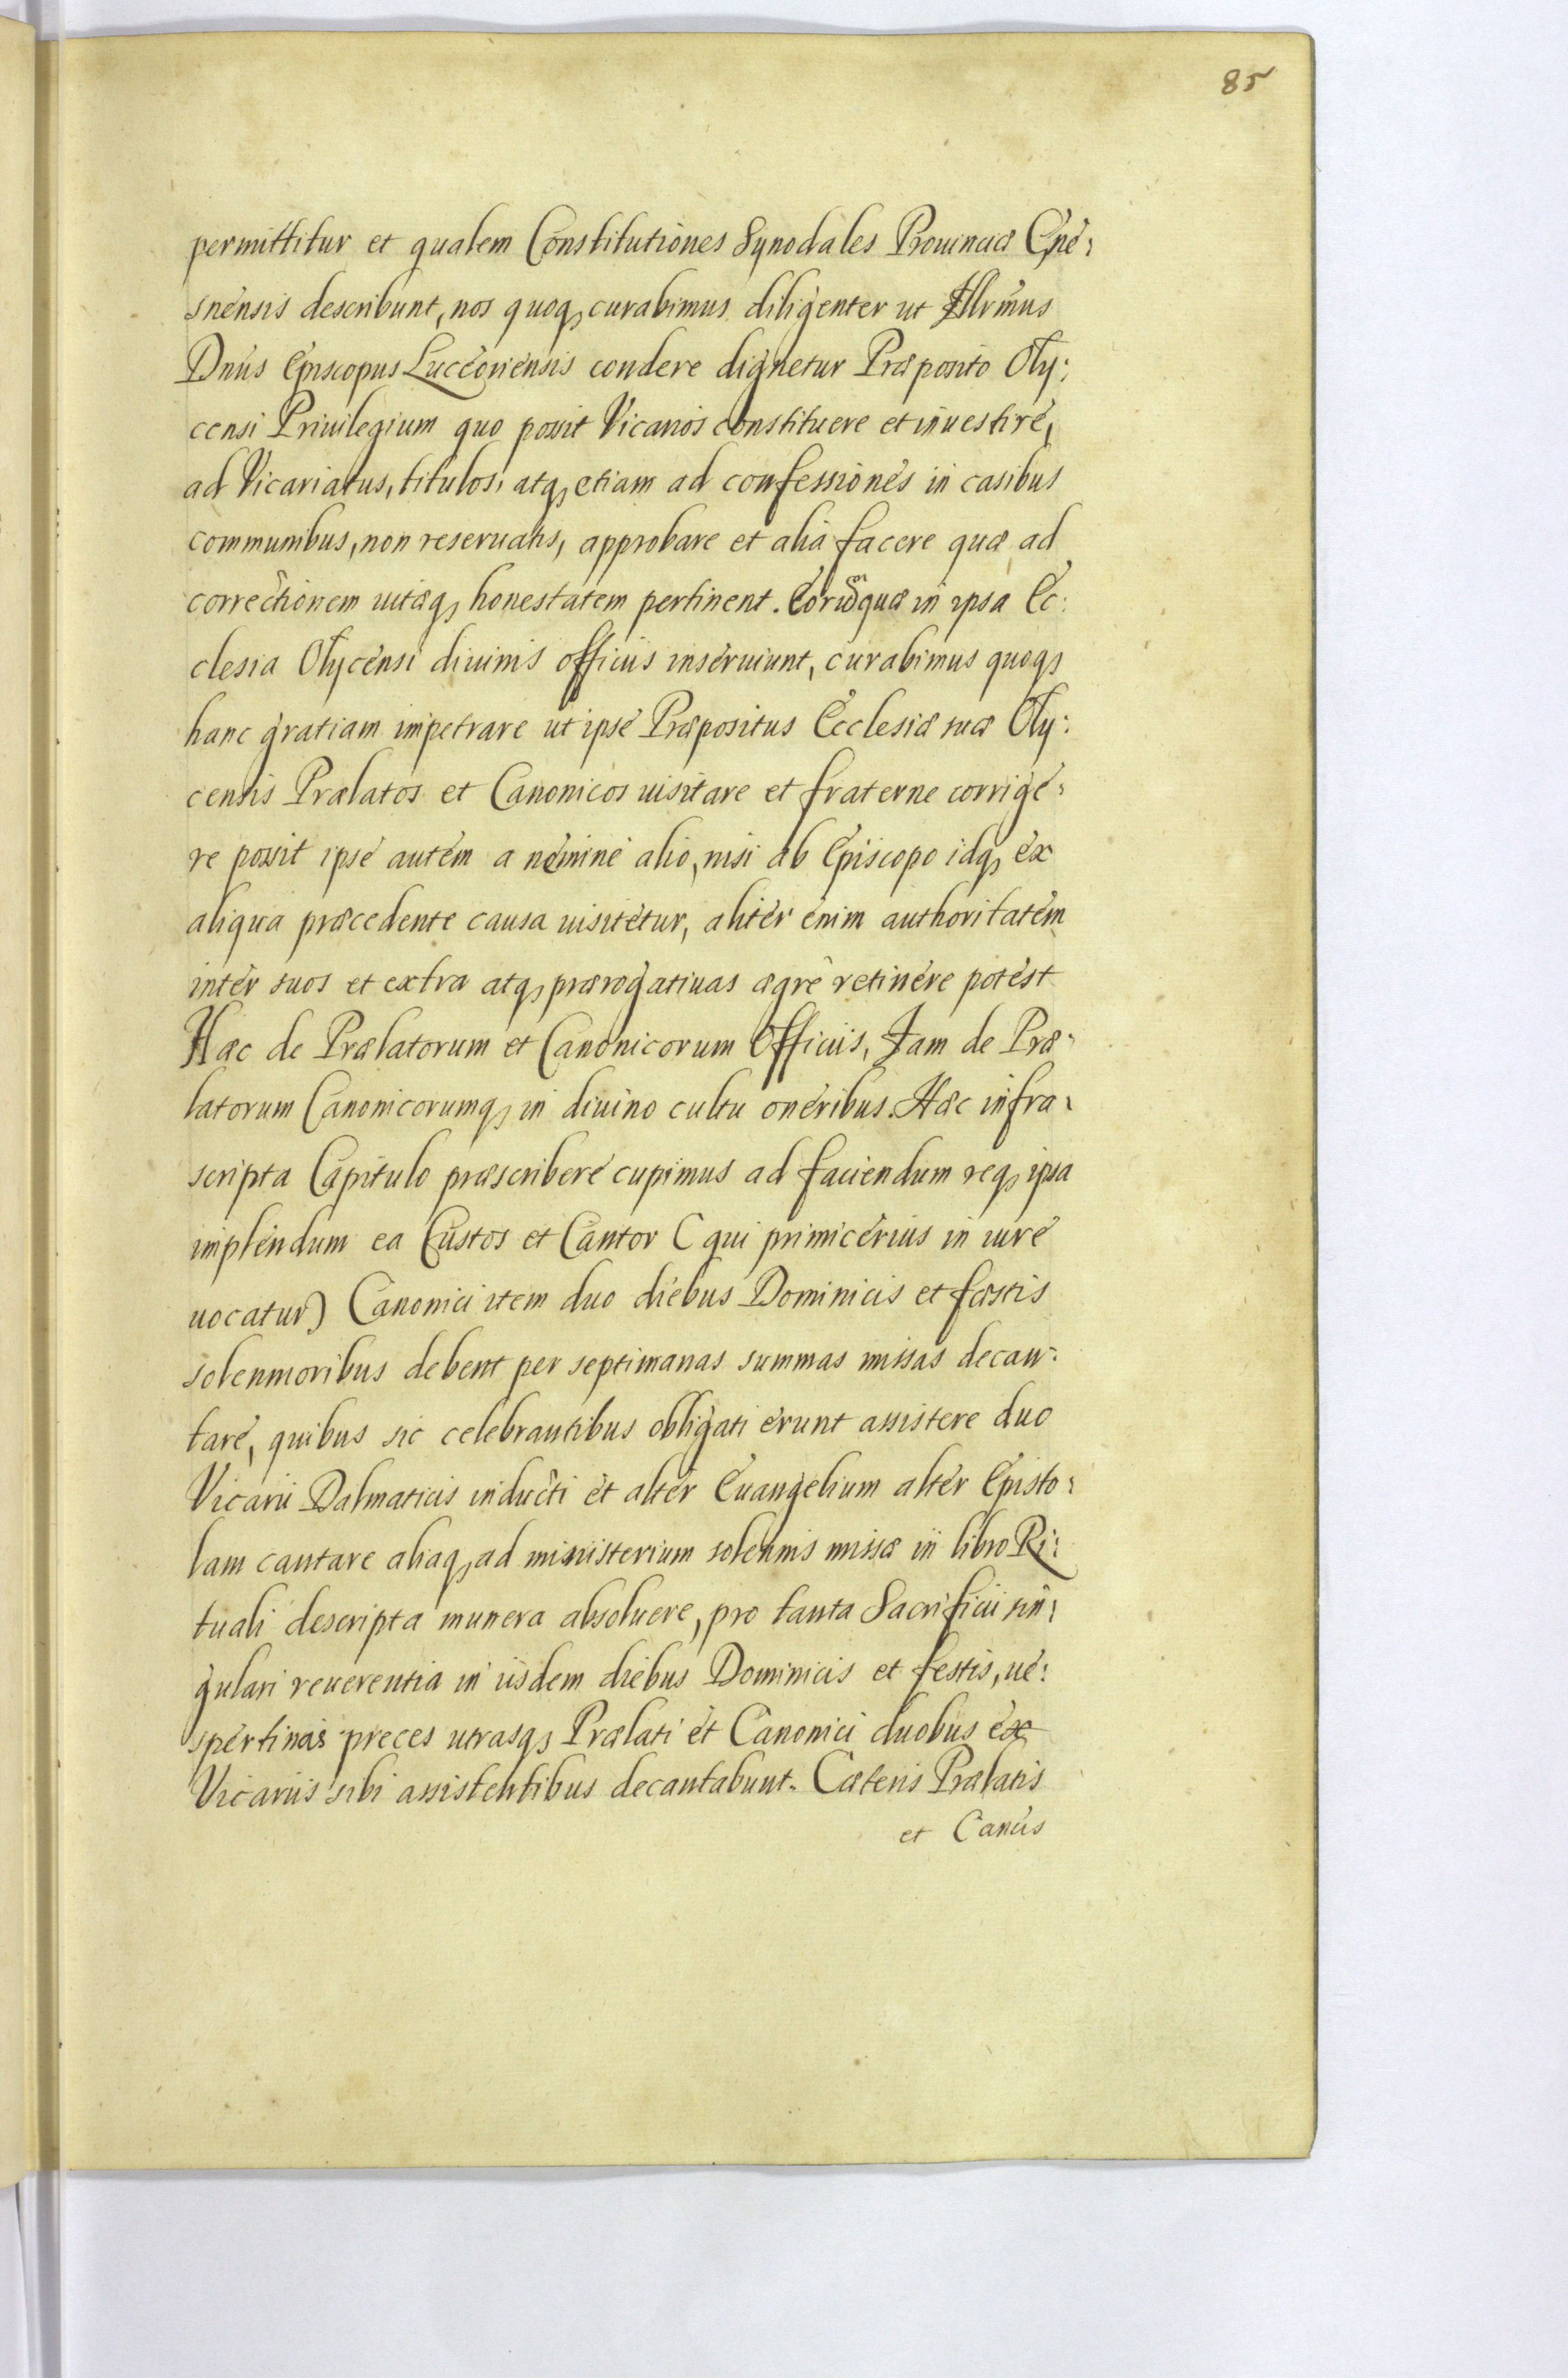 85
permittitur et qualem Constitutiones Synodales Prouinciæ Gne:
snensis describunt, nos quoq, curabimus diligenter ut Illrmus
Dnus Episcopus Luceoriensis condere dignetur Præposito Oly:
censi Priuilegium quo possit Vicarios constituere et inuestire,
ad Vicariatus, titulos, atq, etiam ad confessiones in casibus
communibus, non reseruatis, approbare et alia facere quæ ad
correctionem uitæq, honestatem pertinent. quæ in ipsa Ec:
clesia Olycensi diuinis officiis inseruiunt, curabimus quoq,
hanc gratiam impetrare ut ipse Præpositus Ecclesiæ suæ Oly:
censis Prælatos et Canonicos uisitare et fraterne corrige:
re possit ipse autem a nemine alio, nisi ab Episcopo idq, ex
aliqua præcedente causa uisitetur, aliter enim authoritatem
inter suos et extra atq, prærogatiuas ægre retinere potest
Hæc de Prælatorum et Canonicorum Officiis, Jam de Præ:
latorum Canonicorumq, in diuino cultu oneribus. Hæc infra:
scripta Capitulo præscribere cupimus ad faciendum req, ipsa
implendum ea Custos et Cantor ( qui primicerius in iure
uocatur) Canonici item duo diebus Dominicis et fæstis
solenmoribus debent per septimanas summas missas decan:
tare, quibus sic celebrantibus obligati erunt assistere duo
Vicarii Dalmaticis inducti et alter Euangelium alter Episto:
lam cantare aliaq, ad ministerium solennis missæ in libro Ri:
tuali descripta munera absoluere, pro tanta Sacrificii sin:
gulari reuerentia in iisdem diebus Dominicis et festis, ue:
spertinas preces utrasq, Prælati et Canonici duobus ex
Vicariis sibi assistentibus decantabunt. Cæteris Prælatis
et Cancis